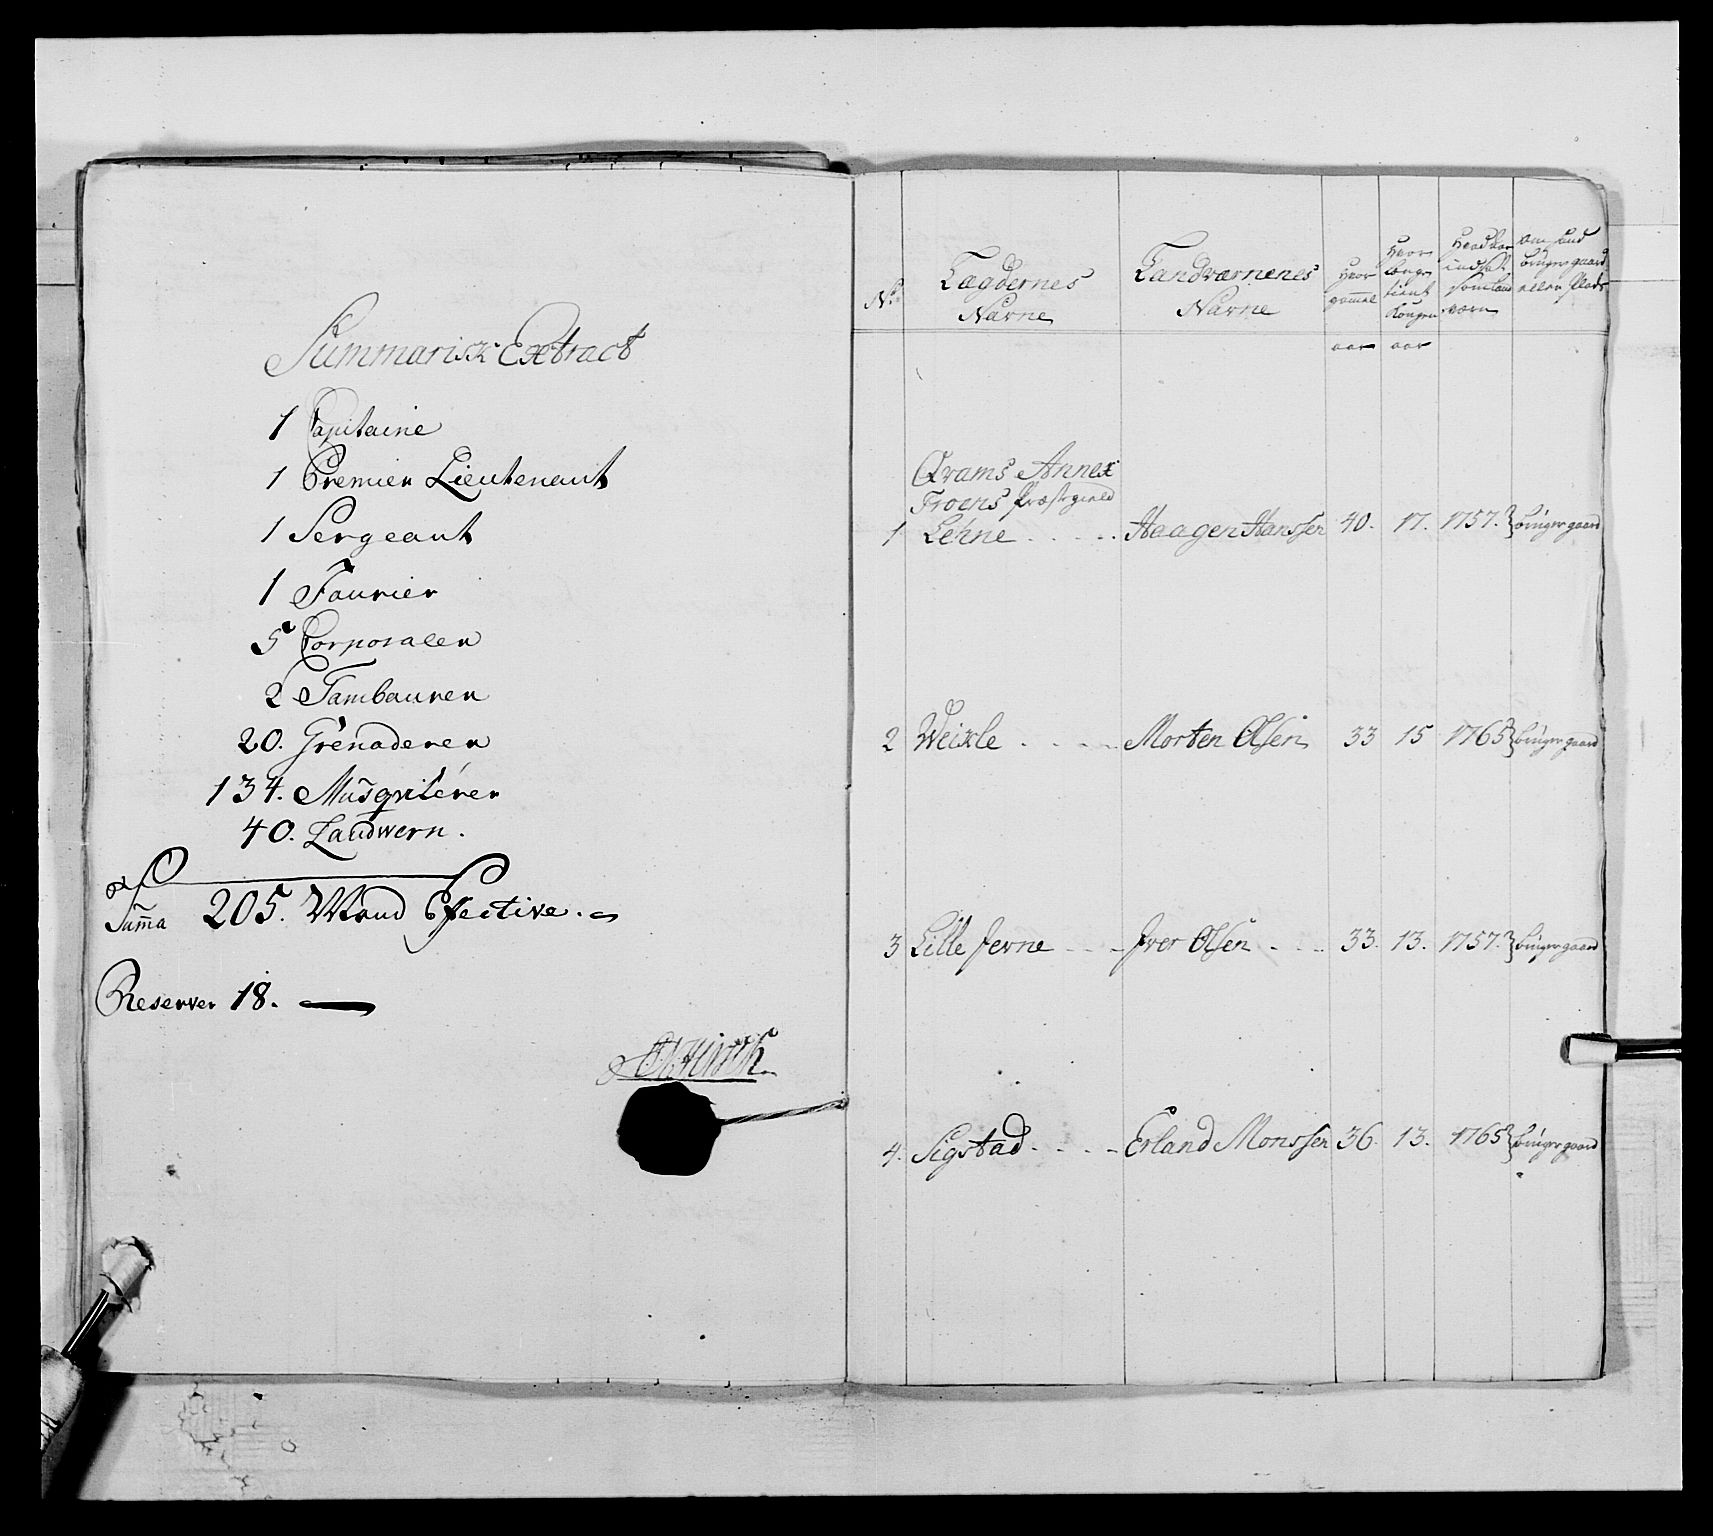 Summarisk Extract
1 Capitaine
1 Premier Lieutenant
1 Sergeant
1 Fourier
5 Corporaler
2 Tambourer
20. Grenaderer
134. Musqvitérer
40. Landwern.
Sum̃a 205. Mand Efective.
Reserver 18.
No. Lægdernes Navne Landværnenes Navne Hvor gammel Hvor længe tient Kongen Hvad Aar indsat som Land værn om hand bruger gaard eller Plads
aar aar
Qvams Annex
Froens Præstgield
1 Lehne Haagen Hanssen 40. 17. 1757. bruger gaard
2 Weixle Morten Olsen 33 15 1765 bruger gaard
3 Lille Jevne Iver Olsen 33. 13. 1757. bruger gaard
4. Sigstad Erland Monssen 36. 13. 1765 bruger gaard